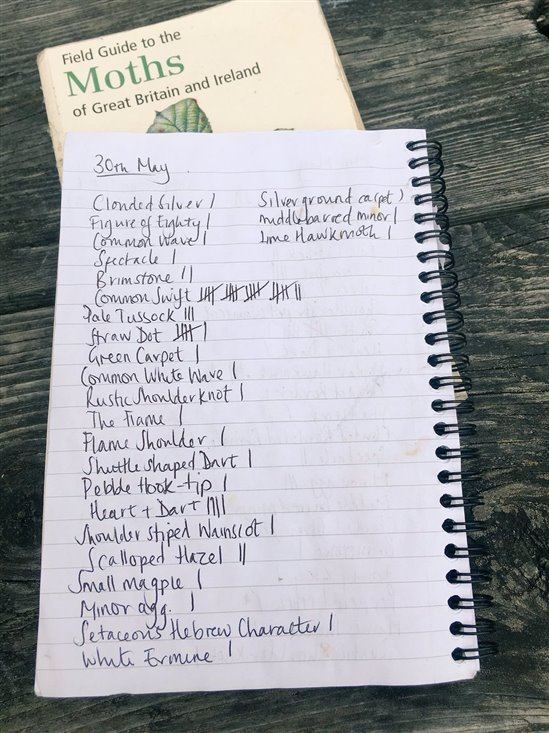 Field Guide to the
Moths
of Great Britain and Ireland
30th May.
Clouded Silver |
Figure of Eighty |
Common Wave |
Spectacle |
Brimstone ||
Common Swift 卌 卌 卌 卌 ||
Pale Tussock |||
Straw Dot 卌 |
Green Carpet |
Common White Wave |
Rustic Shoulder Knot |
The Flame |
Flame Shoulder |
Shuttle Shaped Dart |
Pebble Hook-tip |
Heart + Dart ||||
Shoulder Stiped Wainscot |
Scalloped Hazel ||
Small magpie |
Minor agg. |
Setaceous Hebrew Character |
White Ermine |
Silver ground carpet |
middle barred minor |
Lime Hawkmoth |